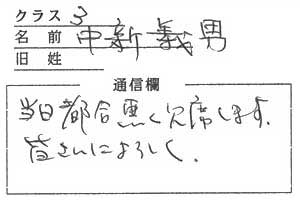 クラス 3
名前 中新義男
旧姓
通信欄
当日都合悪く欠席します。
皆さんによろしく。